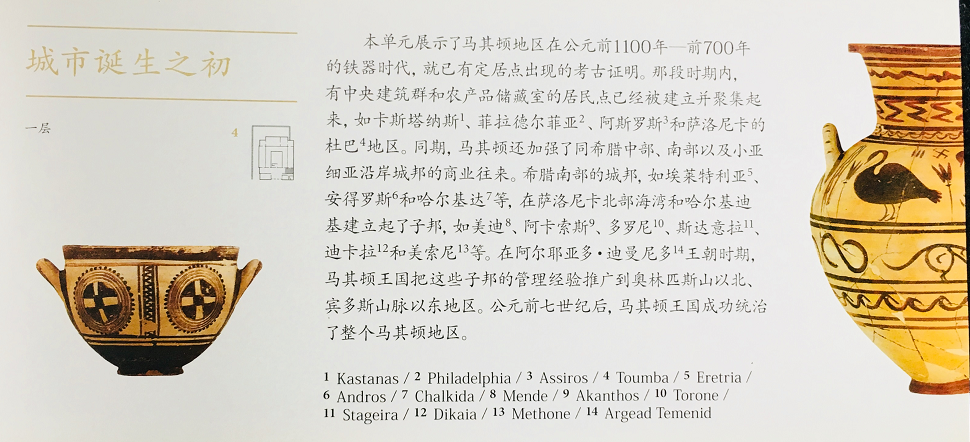 城市诞生之初
一层
4
本单元展示了马其顿地区在公元前1100年—前700年
的铁器时代, 就已有定居点出现的考古证明。那段时期内,
有中央建筑群和农产品储藏室的居民点已经被建立并聚集起
来, 如卡斯塔纳斯¹、菲拉德尔菲亚²、阿斯罗斯³和萨洛尼卡的
杜巴⁴地区。同期, 马其顿还加强了同希腊中部、南部以及小亚
细亚沿岸城邦的商业往来。希腊南部的城邦, 如埃莱特利亚⁵、
安得罗斯⁶和哈尔基达⁷等, 在萨洛尼卡北部海湾和哈尔基迪
基建立起了子邦, 如美迪⁸、阿卡索斯⁹、多罗尼¹⁰、斯达意拉¹¹、
迪卡拉¹²和美索尼¹³等。在阿尔耶亚多·迪曼尼多¹⁴王朝时期,
马其顿王国把这些子邦的管理经验推广到奥林匹斯山以北、
宾多斯山脉以东地区。公元前七世纪后, 马其顿王国成功统治
了整个马其顿地区。
1 Kastanas / 2 Philadelphia / 3 Assiros / 4 Toumba / 5 Eretria /
6 Andros / 7 Chalkida / 8 Mende / 9 Akanthos / 10 Torone /
11 Stageira / 12 Dikaia / 13 Methone / 14 Argead Temenid